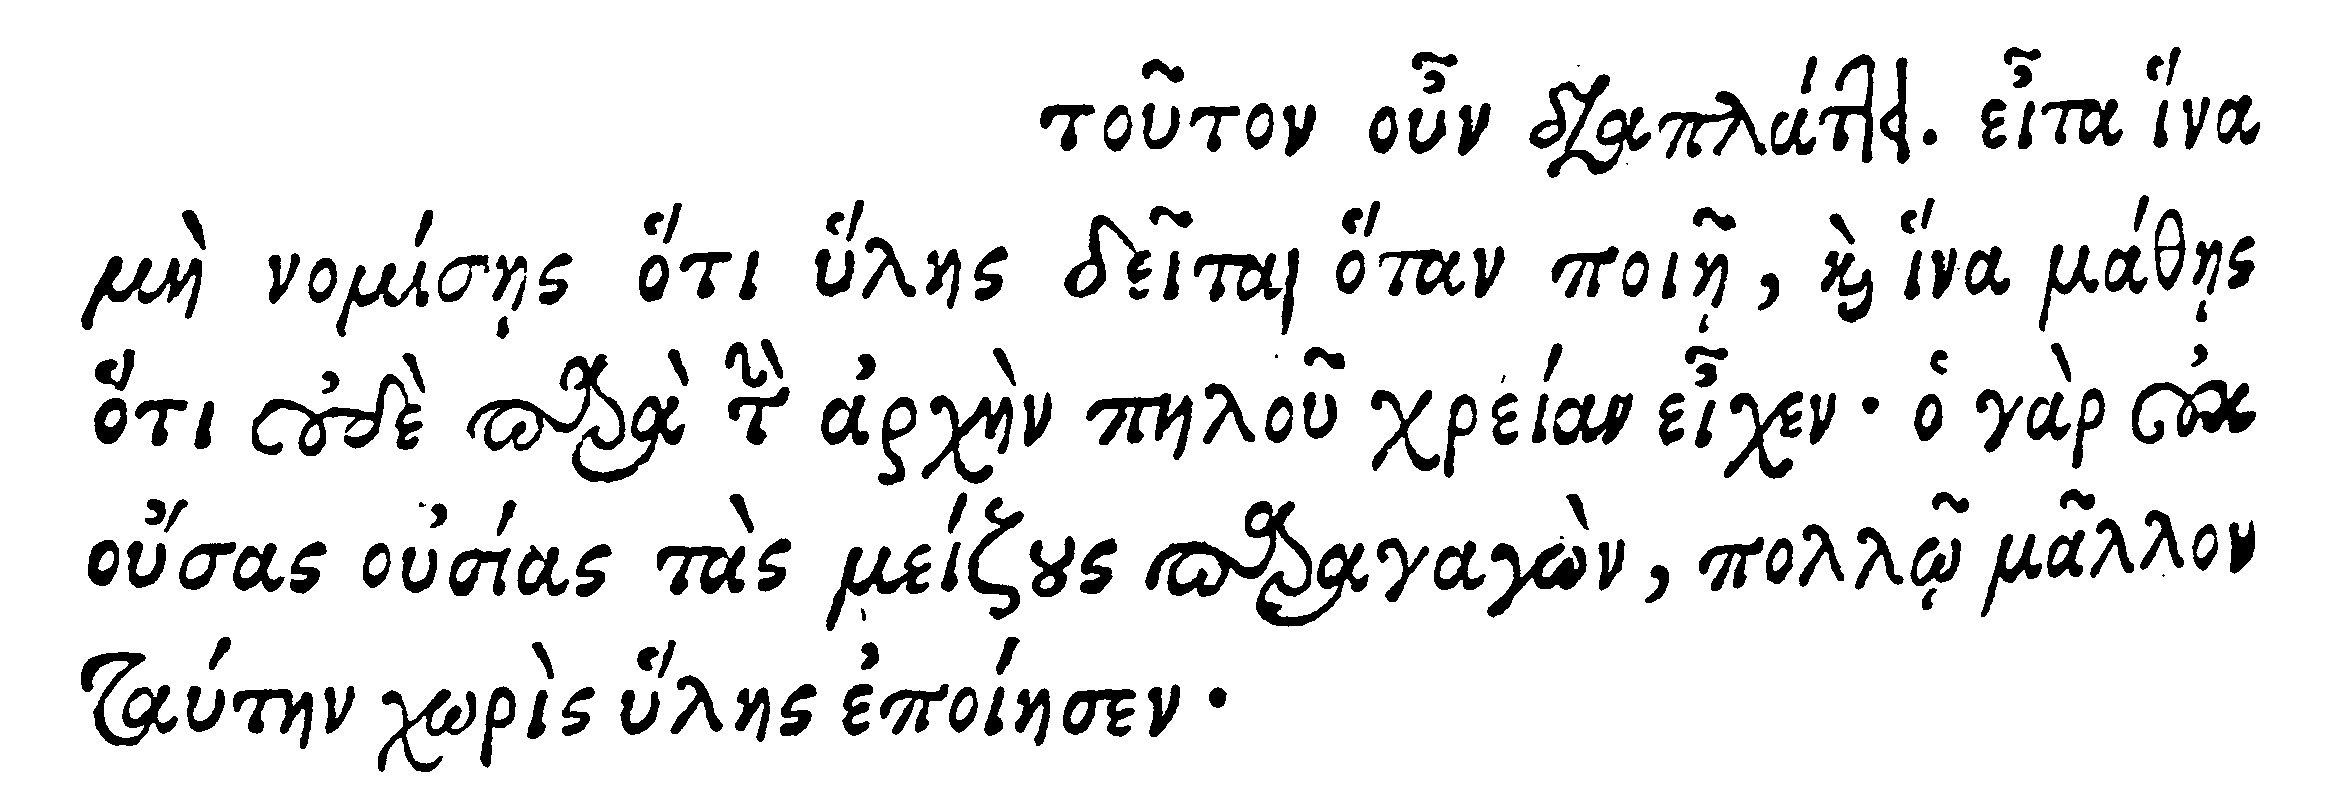 τοῦτον οὖν διαπλάττει. εἶτα ἵνα
μὴ νομίσῃς ὅτι ὕλης δεῖται ὅταν ποιῇ, καὶ ἵνα μάθῃς
ὅτι οὐδὲ παρὰ τὴν ἀρχὴν πηλοῦ χρείαν εἶχεν· ὁ γὰρ οὐκ
οὔσας οὐσίας τὰς μείζους παραγαγὼν, πολλῷ μᾶλλον
ταύτην χωρὶς ὕλης ἐποίησεν·